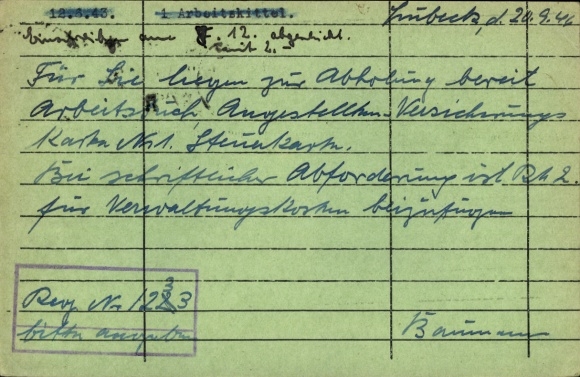 12.8.43. 1 Arbeitskittel.
Lübeck, d. 20.9.46
Einschreiben am 7.12. abgeschickt.
mit 2.-
Für Sie liegen zur Abholung bereit
Arbeitsbuch, Angestellten-Versicherungs
Karte Nr1. Steuerkarte.
Bei schriftlicher Abforderung ist RM 2.
für Verwaltungskosten beizufügen
Reg Nr 1223
bitte angeben
Baumann